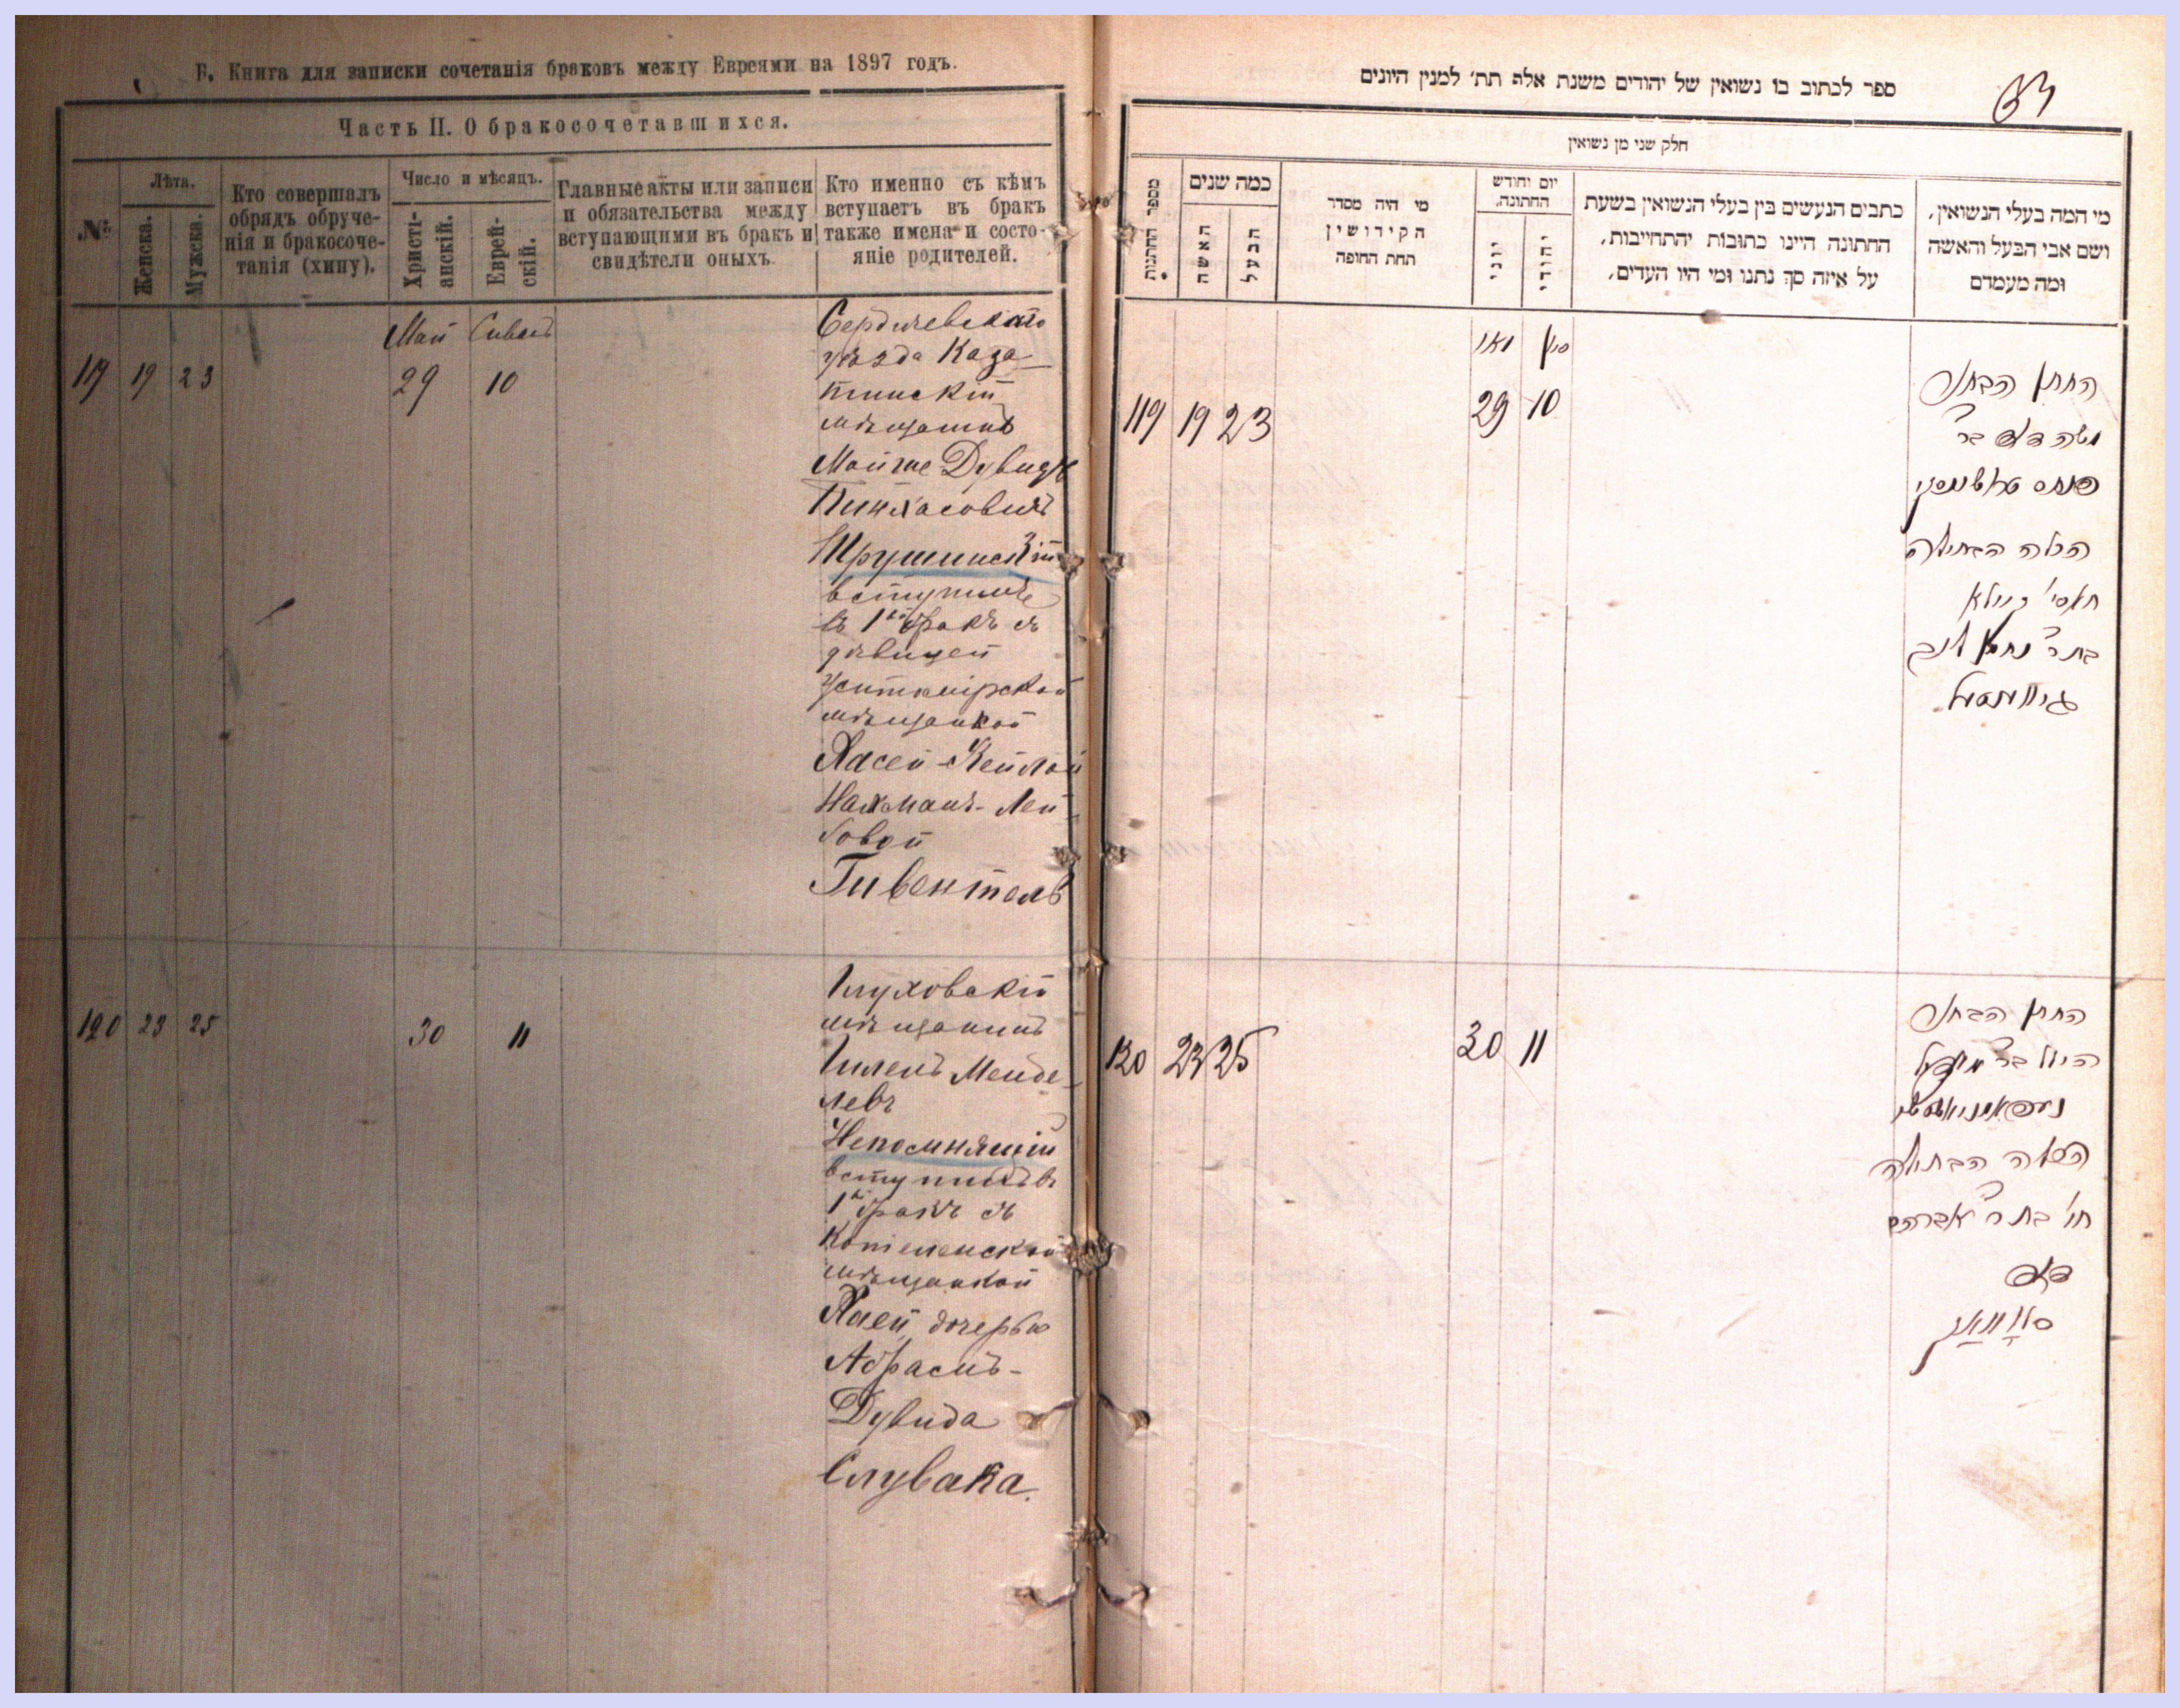 Б. Книга для записки сочетанія браковъ между Евреями на 1897 годъ.
Часть II. О бракосочетавшихся.
№
Лѣта.
Женска.
Мужска.
Кто совершалъ
обрядъ обруче-
нія и бракосоче-
танія (хипу).
Число и мѣсяцъ.
Христі-
анскій.
Еврей-
скій.
Главные акты или записи
и обязательства между
вступающими въ бракъ и
свидѣтели оныхъ.
Кто именно съ кѣмъ
вступаетъ въ бракъ
также имена и состо-
яніе родителей.
Май Сиванъ
119 19 23 29 10
Бердичевскаго
уѣзда Каза-
тинскій
мѣщанинъ
Мойше-Дувидъ
Пинхасовичъ
Трушинскій
вступилъ
въ 1й бракъ съ
дѣвицей
Житомірской
мѣщанкой
Хасей-Кейлой
Нахманъ-Лей-
бовой
Гивентель
120 23 25 30 11
Глуховскій
мѣщанинъ
Гилель Менде-
левъ
Непомнящій
вступилъ въ
1й бракъ съ
мѣщанкой
Хаей дочерью
Абрамъ-
Дувида
Слувака.
ספר לכתוב בו נשואין של יהודים משנת אלף תת׳ למנין היונים
חלק שני מן נשואין
מספר החתנות
כמה שנים
האשה
הבעל
מי היה מסדר
הקידושין
תחת החופה
יום וחודש
החתונה.
יוני
יהודי
כתבים הנעשים בין בעלי הנשואין בשעת
החתונה היינו כתובות יהתחייבות,
על איזה סך נתנו ומי היו העדים,
מי המה בעלי הנשואין,
ושם אבי הבעל והאשה
ומה מעמדם
מאי סיון
119 19 23 29 10
החתן הבחור
משה דוד בר׳
פנחס טרושינסקי
הכלה הבתולה
חאסי׳ קיילא
בת ר׳ נחמן ליב
גיווענטעל
120 23 25 30 11
החתן הבחור
הילל בר׳ מענדל
הכלה הבתולה
חי׳ בת ר׳ אברהם
דוד